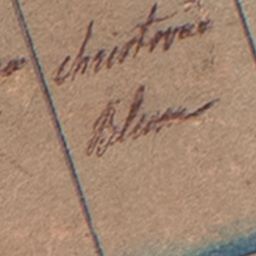 christovao
Blum